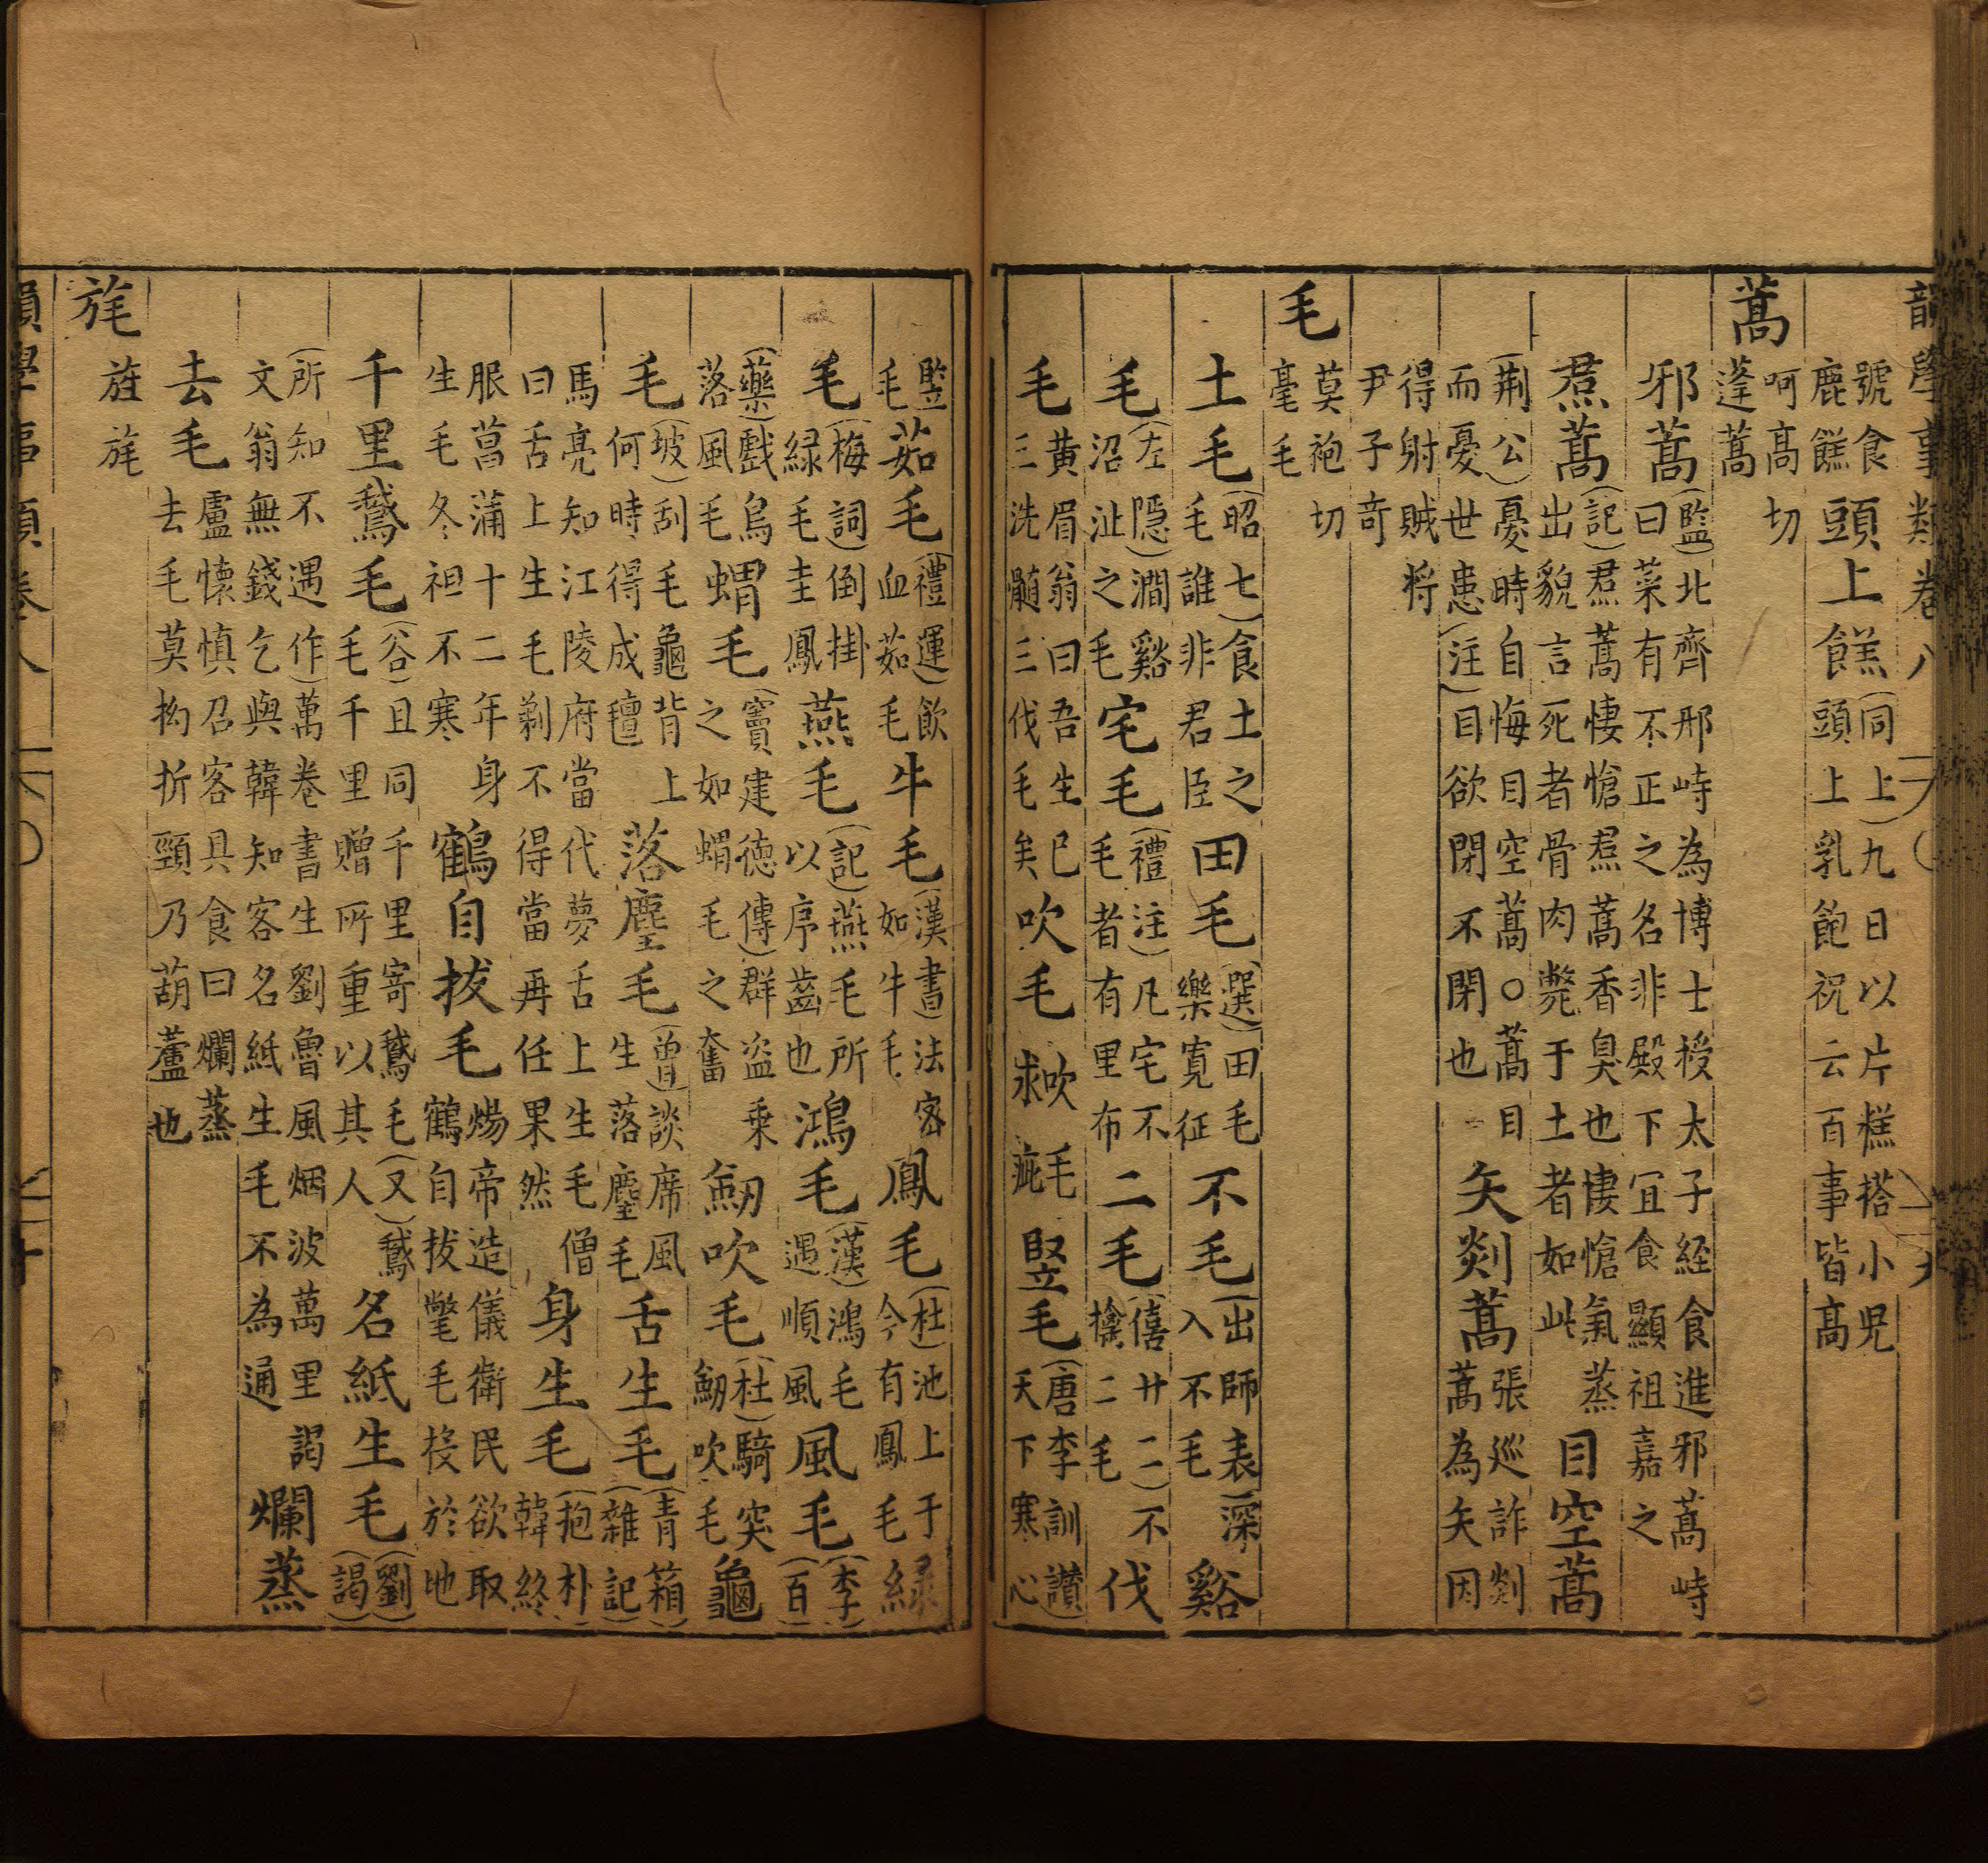 韻學事類卷八
號食
鹿餻
頭上餻
(同上)九日以片糕搭小児
頭上乳飽祝云百事皆高
蒿
呵高切
蓬蒿
邪蒿
(監)北齊邢峙為博士授太子経食進邪蒿峙
曰菜有不正之名非殿下冝食顯祖嘉之
焄蒿
(記)焄蒿悽愴焄蒿香臭也悽愴氣蒸
出貌言死者骨肉斃于土者如此
目空蒿
(荆公)憂時自悔目空蒿○蒿目
而憂世患(注)目欲閉不閉也
矢剡蒿
張巡詐剡
蒿為矢因
得射賊将
尹子竒
毛
莫袍切
毫毛
土毛
(昭七)食土之
毛誰非君臣
田毛
(選)田毛
樂寛征
不毛
(出師表)深
入不毛
谿
毛
(左隱)澗谿
沼沚之毛
宅毛
(禮注)凡宅不
毛者有里布
二毛
(僖廿二)不
擒二毛
伐
毛
黄眉翁曰吾生已
三洗髄三伐毛矣
吹毛
吹毛
求疵
竪毛
(唐李訓讃)
天下寒心
竪
毛
茹毛
(禮運)飲
血茹毛
牛毛
(漢書)法宻
如牛毛
鳳毛
(杜)池上于
今有鳳毛
緑
毛
(梅詞)倒掛
緑毛圭鳳
燕毛
(記)燕毛所
以序齒也
鴻毛
(漢)鴻毛
遇順風
風毛
(李)
(百)
(藥)戲烏
落風毛
蝟毛
(竇建徳傳)群盗乗
之如蝟毛之奮
劒吹毛
(杜)騎突
劒吹毛
龜
毛
(坡)刮毛龜背上
何時得成氊
落麈毛
(曾)談席風
生落麈毛
舌生毛
(青箱
雜記)
馬亮知江陵府當代夢舌上生毛僧
曰舌上生毛剃不得當再任果然
身生毛
(抱朴)
韓終
服菖蒲十二年身
生毛冬袒不寒
鶴自拔毛
煬帝造儀衛民欲取
鶴自拔氅毛投於地
千里鵞毛
(谷)且同千里寄鵞毛(又)鵞
毛千里贈所重以其人
名紙生毛
(劉)
(謁)
(所知不遇作)萬卷書生劉魯風烟波萬里謁
文翁無錢乞與韓知客名紙生毛不為通
爛蒸
去毛
盧懷慎召客具食曰爛蒸
去毛莫拗折頸乃葫蘆也
旄
旌旄
韻學事類卷八